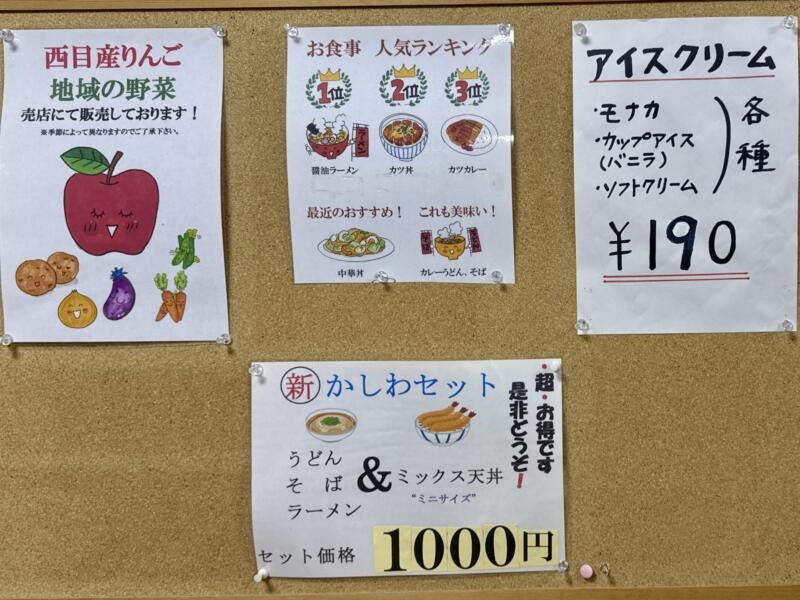 西目産りんご
地域の野菜
売店にて販売しております！
※季節によって異なりますのでご了承下さい。
お食事 人気ランキング
1位 2位 3位
ラーメン
醤油ラーメン カツ丼 カツカレー
最近のおすすめ！ これも美味い！
中華丼 カレーうどん、そば
アイスクリーム
・モナカ
・カップアイス
(バニラ)
・ソフトクリーム
各種
¥190
新 かしわセット
・超・お得です
是非どうぞ！
うどん
そば
ラーメン
&
ミックス天丼
“ミニサイズ”
セット価格 1000円